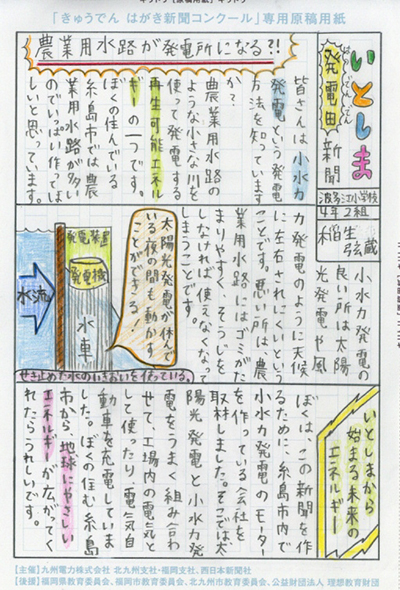 「きゅうでん はがき新聞コンクール」専用原稿用紙
いとしま
発電田新聞
波多江小学校
4年2組
稲生弦蔵
農業用水路が発電所になる?!
皆さんは小水力
発電という発電
方法を知っています
か？
農業用水路の
ような小さな川を
使って発電する
再生可能エネル
ギーの一つです。
ぼくの住んでいる
糸島市では農
業用水路が多い
のでいっぱい作ってほ
しいと思っています。
小水力発電の
良い所は太陽
光発電や風
力発電のように天候
に左右されにくいという
ことです。悪い所は農
業用水路にはゴミがた
まりやすく、そうじを
しなければ使えなくなって
しまうことです。
太陽光発電が休んで
いる夜の間も動かす
ことができる！
発電装置
発電機
水流
水車
せき止めた水のいきおいを使っている。
いとしまから
始まる未来の
エネルギー
ぼくは、この新聞を作
るために、糸島市内で
小水力発電のモーター
を作っている会社を
取材しました。そこでは太
陽光発電と小水力発
電をうまく組み合わ
せて、工場内の電気と
して使ったり、電気自
動車を充電していま
した。ぼくの住む糸島
市から地球にやさしい
エネルギーが広がってく
れたらうれしいです。
【主催】九州電力株式会社 北九州支社・福岡支社、西日本新聞社
【後援】福岡県教育委員会、福岡市教育委員会、北九州市教育委員会、公益財団法人 理想教育財団